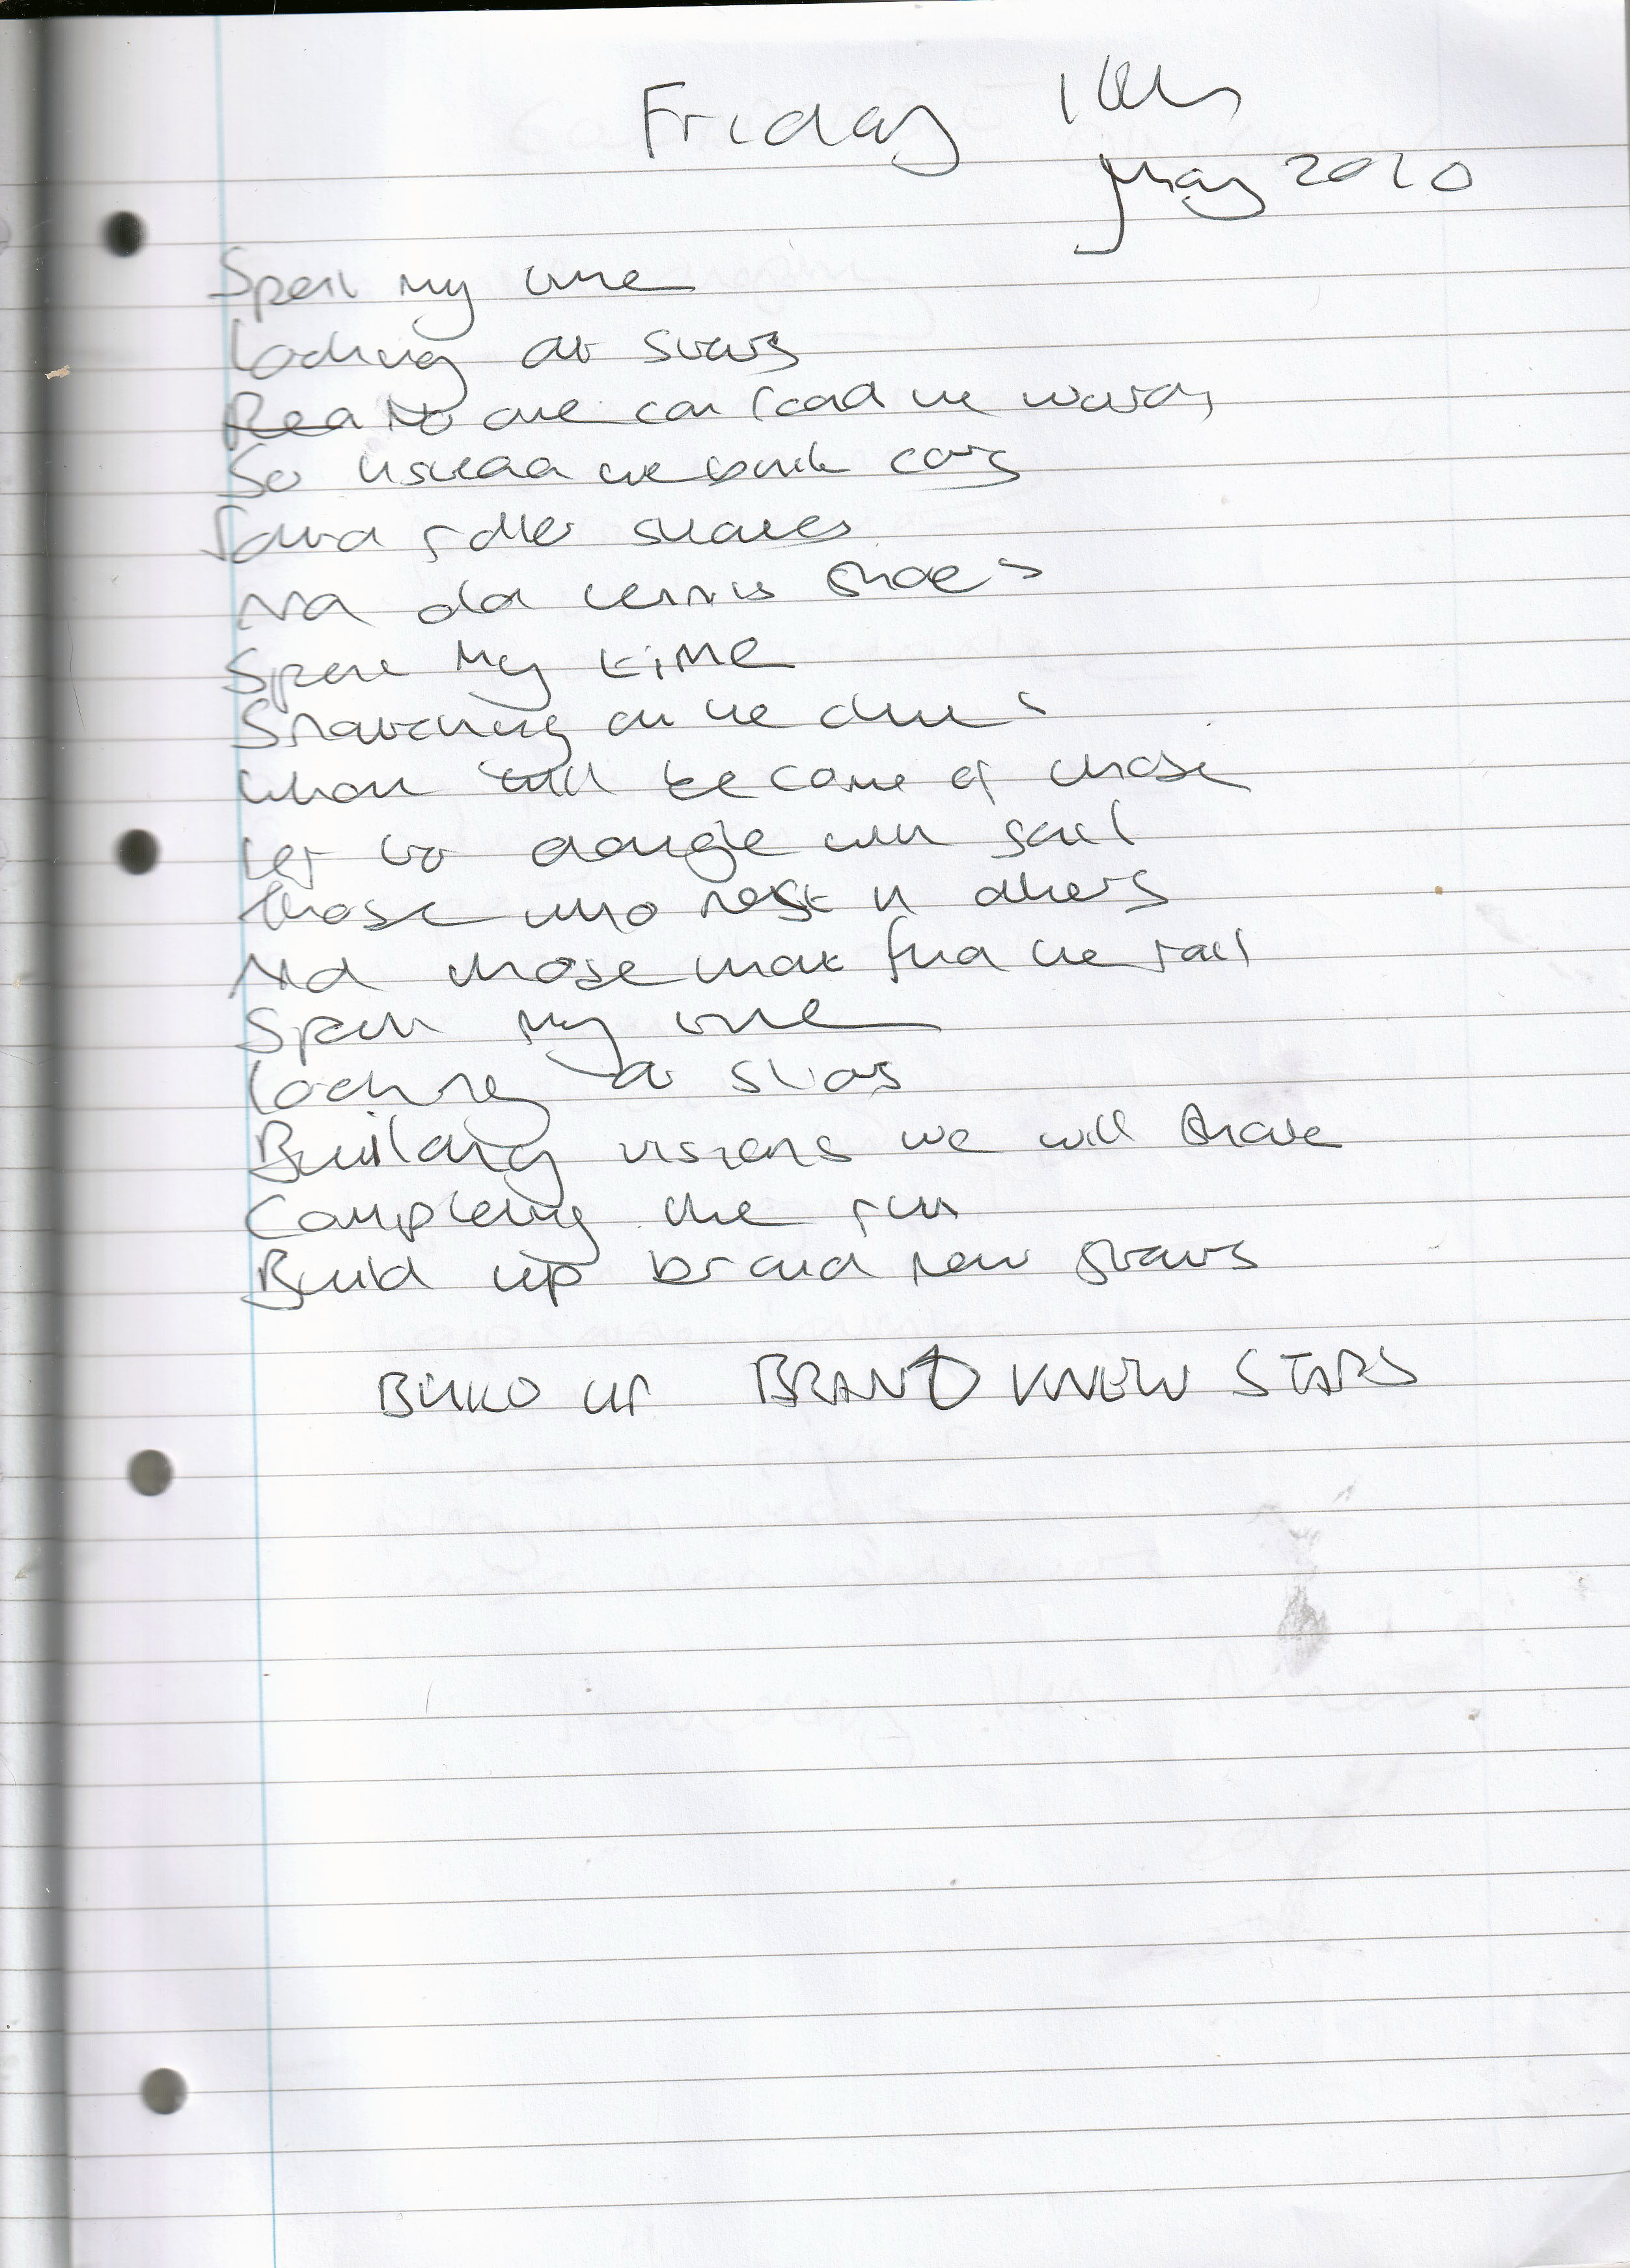 Friday
May 2010
Spent my time
Looking at stars
No one can read the words
So instead we built cars
Sound roller skates
And old tennis shoes
Spent my time
Snatching on the clues
What will become of those
Left to dangle and
Those who rest in others
And those that find the rail
Spent my time
Looking at stars
Building visions we will share
Completing the run
Build up brand new stars
BUILD UP BRAND KNEW STARS